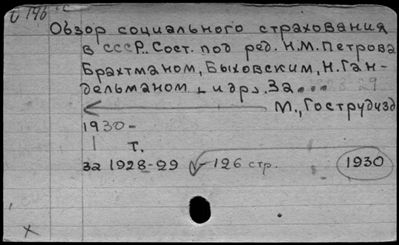 Обзор социального страхования
в СССР. Сост. под ред. Н.М. Петрова
Брахтманом, Быховским, Н. Ган-
дельманом и др. За...
М., Гострудизд
1930-
т.
за 1928-29 126 стр. 1930